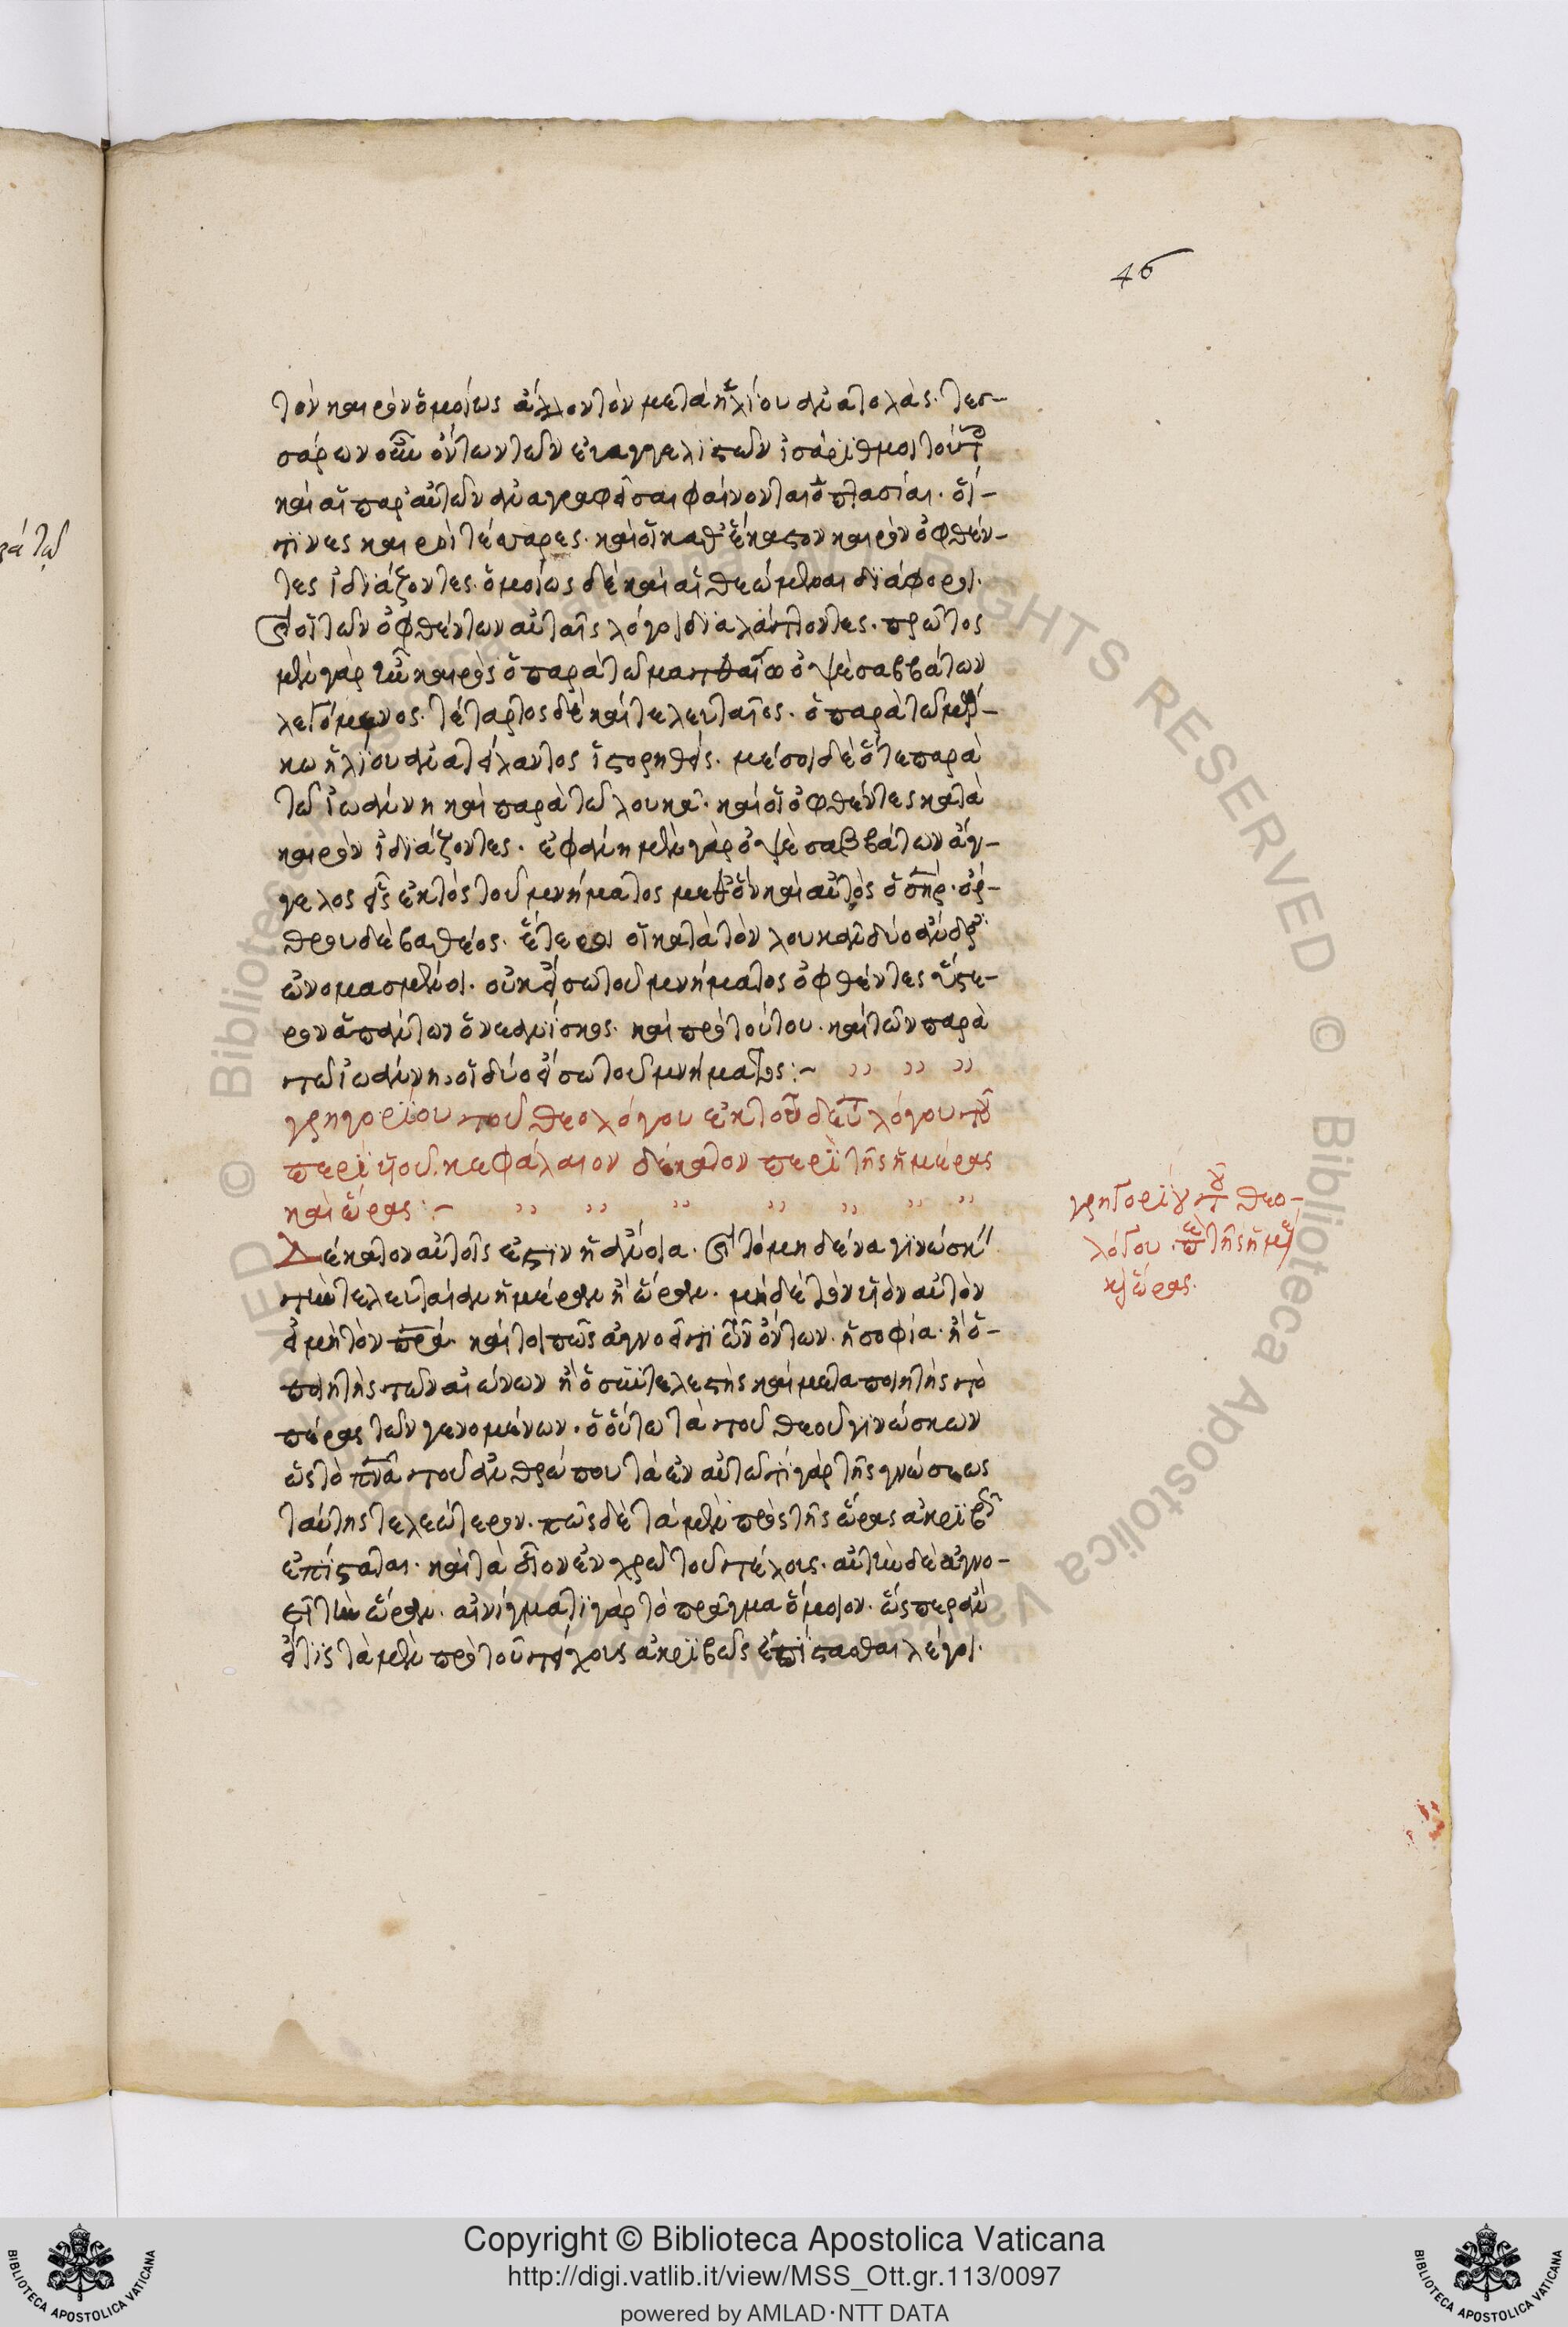 46
τὸν καιρὸν ὁμοίως ἄλλον τὸν μετὰ ἡλίου ἀνατολὰς. τεσ-
σάρων οὖν ὄντων τῶν εὐαγγελιστῶν ἰσάριθμοι τούτ
καὶ αἱ παρ' αὐτῶν ἀναγραφεῖσαι φαίνονται ὀπτασίαι. οἵ-
τινες καιροὶ τέσσαρες. καὶ οἱ καθ' ἕκαστον καιρὸν ὀφθέν-
τες ἰδιάζοντες. ὁμοίως δὲ καὶ αἱ θεώμεναι διάφοροι.
καὶ οἱ τῶν ὀφθέντων αὐταῖς λόγοι διαλάττοντες. πρῶτος
μὲν γὰρ ἦν καιρὸς ὁ παρὰ τῶ ματθαίω ὀψὲ σαββάτων
λεγόμενος. τέταρτος δὲ καὶ τελευταῖος. ὁ παρὰ τῶ μάρ-
κω ἡλίου ἀνατείλαντος ἱστορηθείς. μέσοι δὲ ὅ τε παρὰ
τῶ ἰωάννη καὶ παρὰ τῶ λουκᾶ. καὶ οἱ ὀφθέντες κατὰ
καιρὸν ἰδιάζοντες. ἐφάνη μὲν γὰρ ὀψὲ σαββάτων ἄγ-
γελος εἷς ἐκτὸς τοῦ μνήματος μεθ' ὃν καὶ αὐτὸς ὁ σηρ. ὄρ-
θρου δὲ βαθέος. ἕτεροι οἱ κατὰ τὸν λουκᾶν δύο ἄνδρ
ὠνομασμένοι. οὐκ εἴσω τοῦ μνήματος ὀφθέντες ὕστε-
ρον ἁπάντων ὁ νεανίσκος. καὶ πρὸ τούτου. καὶ τῶν παρὰ
τῶ ἰωάννη, οἱ δύο εἴσω τοῦ μνήματος:-
γρηγορίου τοῦ θεολόγου ἐκ τοῦ δευτ λόγου τοῦ
περὶ υἱοῦ. κεφάλαιον δέκατον περὶ τῆς ἡμέρας
καὶ ὥρας:-
Δέκατον αὐτοῖς ἐστὶν ἡ ἄνοια. καὶ τὸ μηδένα γινώσκ
τὴν τελευταίαν ἡμέραν ἢ ὥραν. μηδὲ τὸν υἱὸν αὐτὸν
εἰ μὴ τὸν πρα. καίτοι πῶς ἀγνοεῖ τι ὧν ὄντων. ἡ σοφία. ἢ ὁ-
ποιητὴς τῶν αἰώνων ἢ ὁ συντελεστὴς καὶ μεταποιητὴς τὸ
πέρας τῶν γενομένων. ὁ οὕτω τὰ τοῦ θεοῦ γινώσκων
ὡς τὸ πνα τοῦ ἀνθρώπου τὰ ἐν αὐτῶ τί γὰρ τῆς γνώσεως
ταύτης τελεώτερον. πῶς δὲ τὰ μὲν πρὸς τῆς ὥρας ἀκριβ
ἐπίσταται. καὶ τὰ οἷον ἐν χρῶ τοῦ τέλους. αὐτὴν δὲ ἀγνο-
εῖ τὴν ὥραν. αἰνίγματι γὰρ τὸ πρᾶγμα ὅμοιον. ὥσπερ ἂν
εἴ τις τὰ μὲν πρὸ τοῦ τείχους ἀκριβῶς ἐπίστασθαι λέγοι.
γρηγορίου τοῦ θεο-
λόγου. περὶ τῆς ἡμέ
κ ὥρας.
Copyright © Biblioteca Apostolica Vaticana
http://digi.vatlib.it/view/MSS_Ott.gr.113/0097
powered by AMLAD·NTT DATA